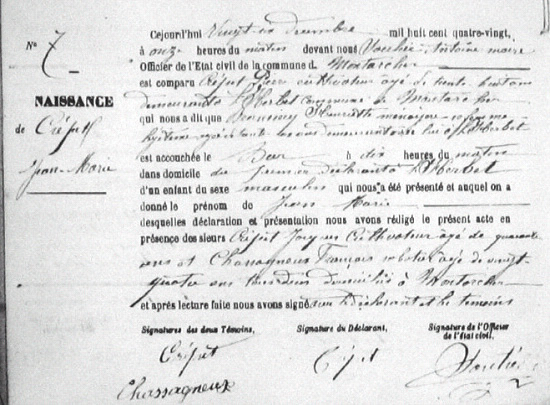 N° 7
NAISSANCE
de Crépet
Jean Marie
Cejourd'hui Vingt un décembre mil huit cent quatre-vingt,
à onze heures du matin devant nous Antoine maire
Officier de l'Etat civil de la commune d Montarcher
est comparu Crépet cultivateur agé de trente huit ans
demeurant à L'Herbet commune de Montarcher
qui nous a dit que ménagère
L'Herbet
est accouchée le à dix heures du matin
dans domicile du premier déclarant à L'Herbet
d'un enfant du sexe masculin qui nous a été présenté et auquel on a
donné le prénom de Jean Marie
desquelles déclaration et présentation nous avons rédigé le présent acte en
présence des sieurs Crépet cultivateur agé de quarante
ans et Chassagneux François agé de vingt
quatre ans tous deux domiciliés à Montarcher
et après lecture faite nous avons signé avec le déclarant et les témoins
Signatures des deux Témoins,
Signature du Déclarant,
Signature de l'Officier
de l'état civil,
Crépet
Crépet
Chassagneux